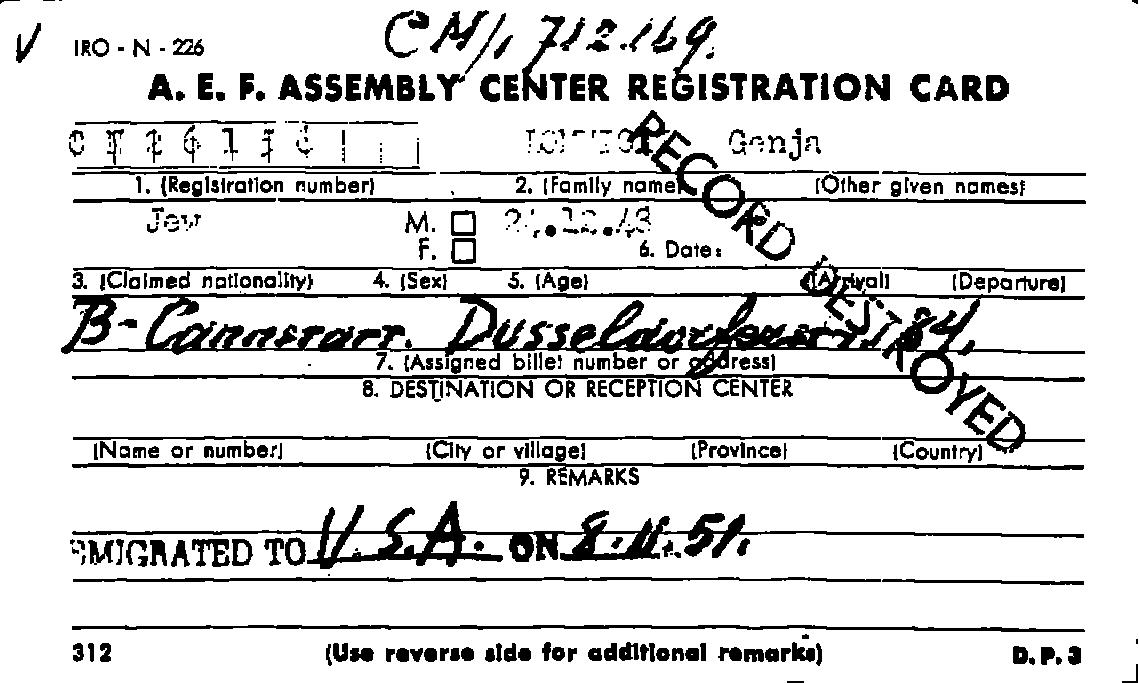 V IRO - N - 226 CM/1 712.169.
A. E. F. ASSEMBLY CENTER REGISTRATION CARD
Genja
1. (Registration number) 2. (Family name) (Other given names)
Jew M. 24.12.48
F. 6. Date:
3. (Claimed nationality) 4. (Sex) 5. (Age) (Arrival) (Departure)
B-Cannstatt. Dusseldorferstr. 84.
7. (Assigned billet number or address)
8. DESTINATION OR RECEPTION CENTER
RECORD DESTROYED
(Name or number) (City or village) (Province) (Country)
9. REMARKS
EMIGRATED TO U.S.A. ON 8.11.51.
312 (Use reverse side for additional remarks) D.P.3